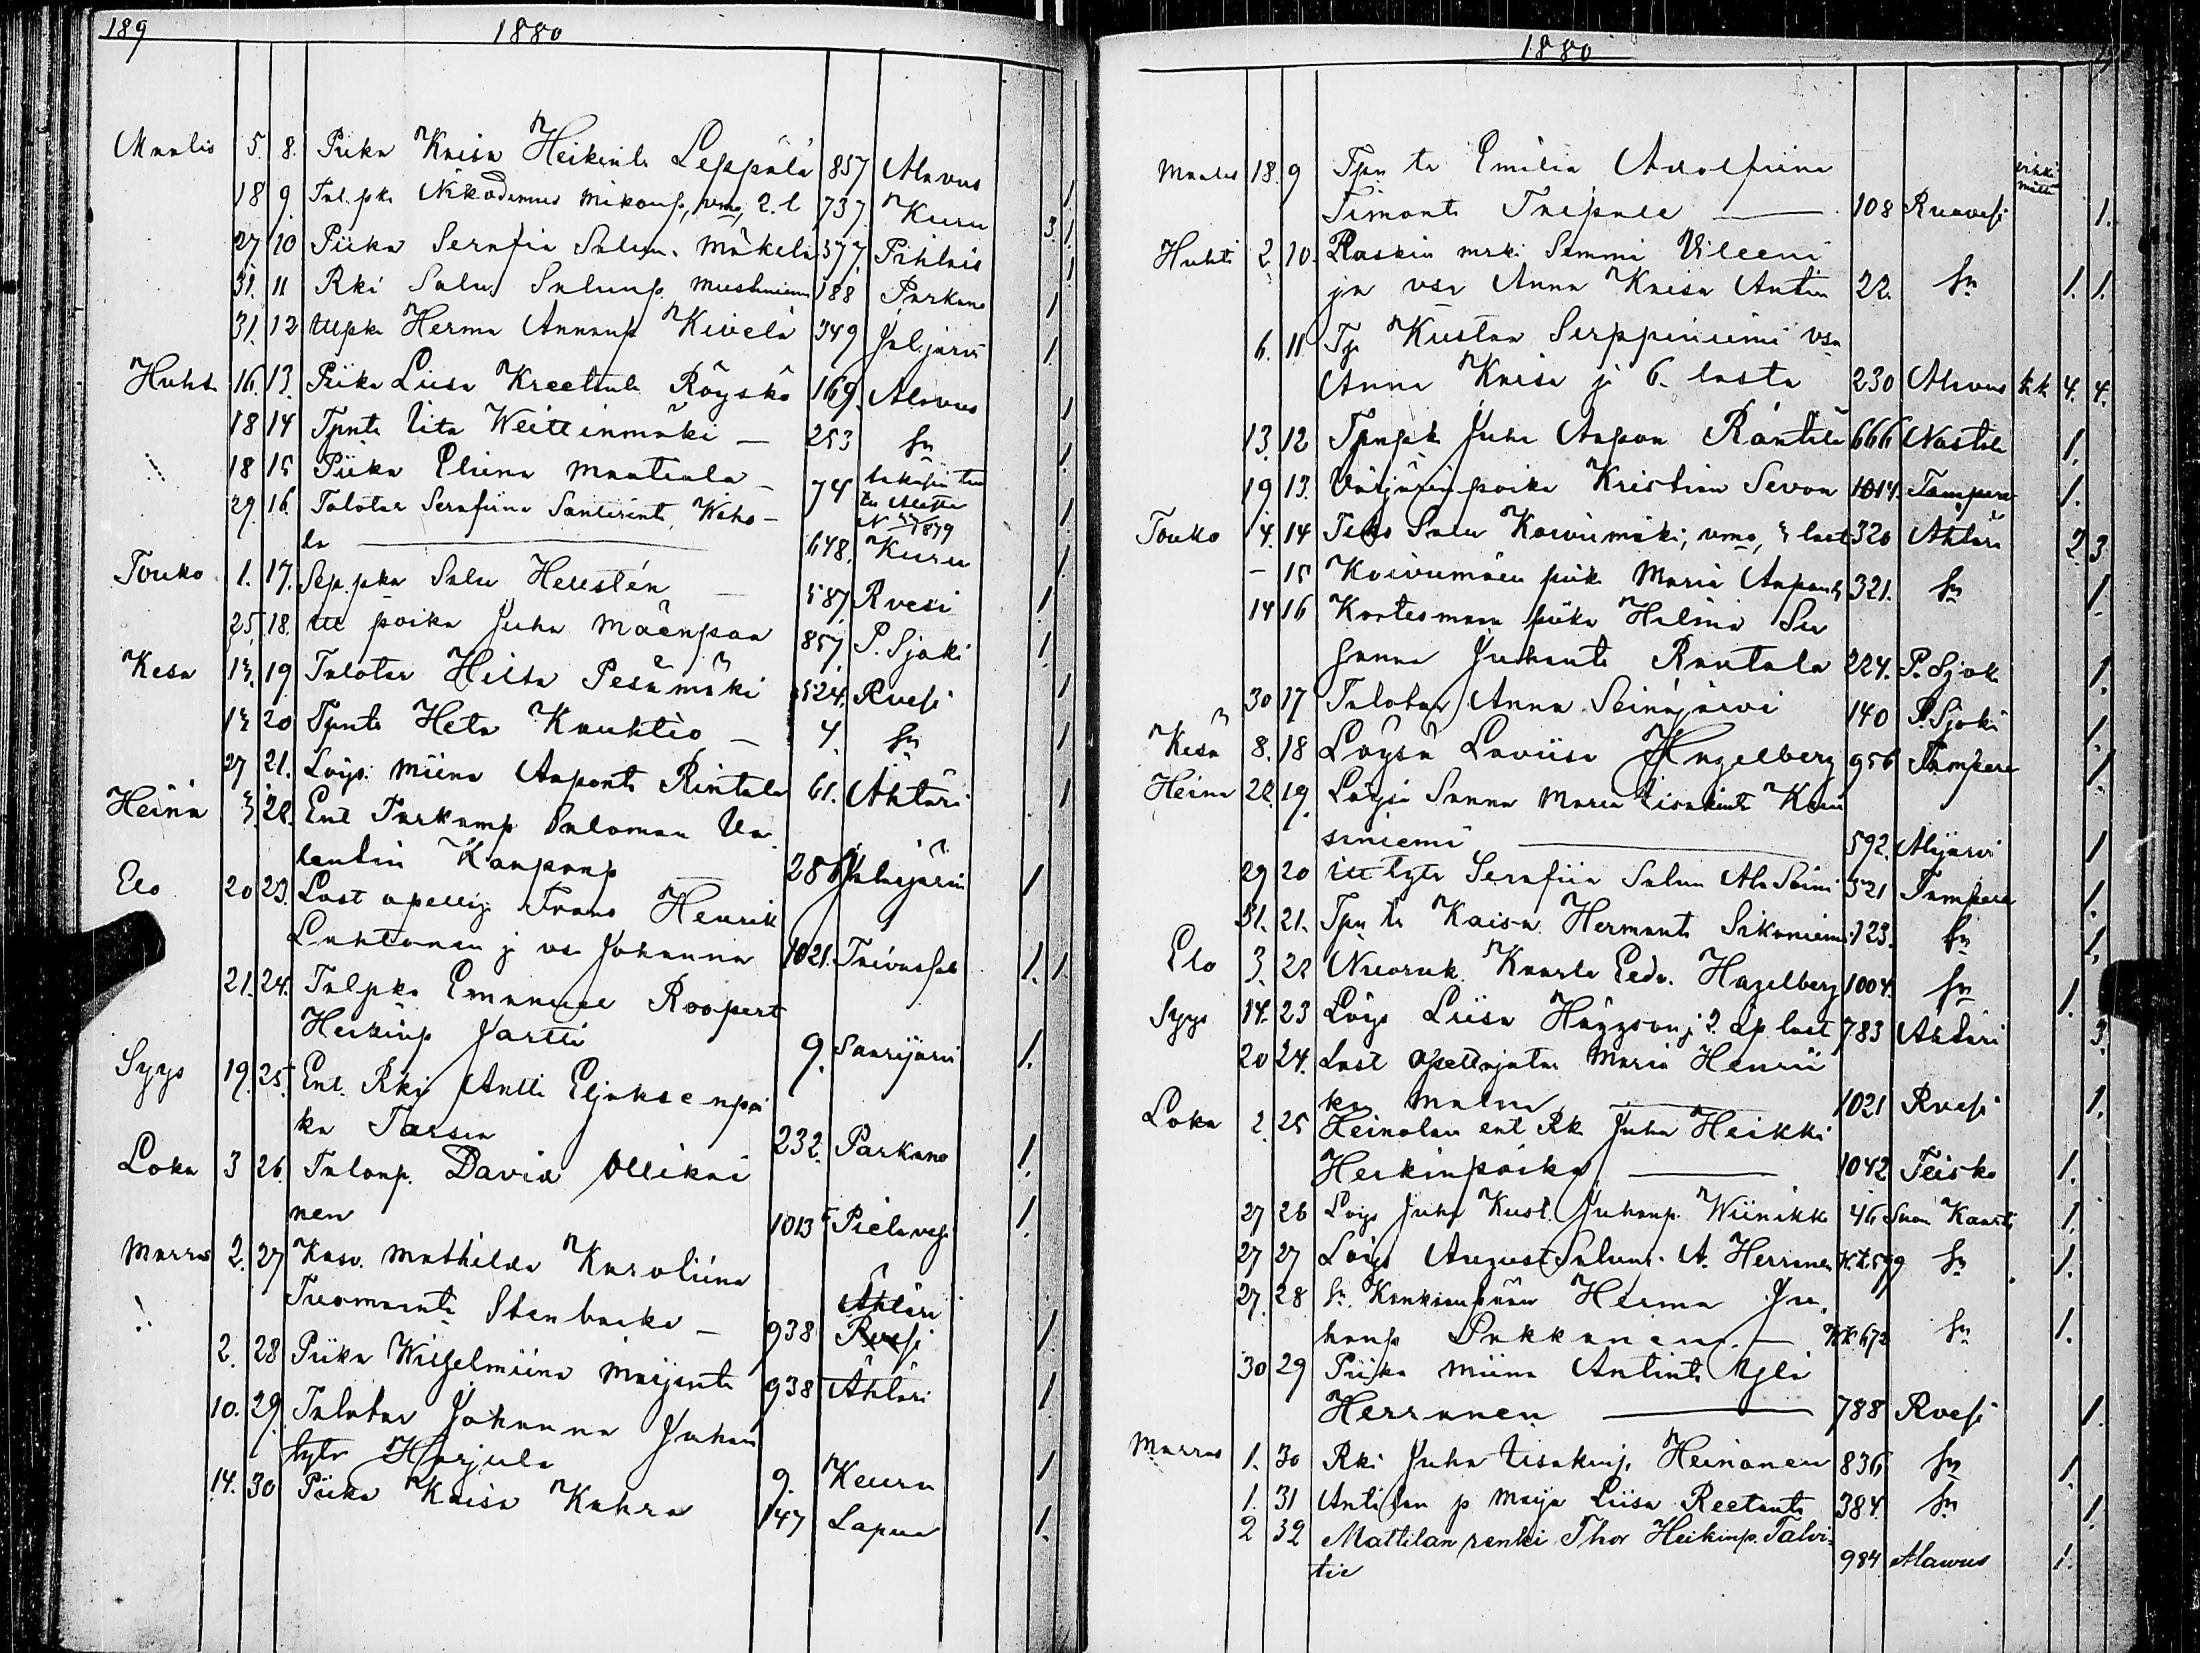 189 1880
Maalis 5. 8. Piika Kaisa Heikint. Leppälä 857 Alavus 1
18 9. Tal. pka Nikodemus Mikonp., vmo, 2. l 737 Kuru 3. 1.
27 10 Piika Serafia Salum. Mäkelä 377 Pihlais 1
31. 11 Rki Salu Salunp. Mustaniemi 188 Parkano 1
31. 12 Herma Annanp Kivelä 349 Jal.järvi 1.
Huht. 16. 13. Piika Liisa Kreetant. Röyskö 169. Alavus 1
18 14 Tpnt. Iita Weitiinmäki — 253 sn 1.
18 15 Piika Eliina Mantiala — 74
29. 16. Talotar Serafiina Santerint. Waho-
la — 648. Kuru 1.
Touko 1. 17. Sep. pka Salu Hellstén — 587 Rvesi 1.
25. 18. itt poika Juha Mäenpää 857 P. Sjoki 1.
Kesä 13. 19. Talotar Hilta Pesämäki 524. Rvesi 1
13 20 Tpnt. Heta Kauhtio — 4. sn 1
27 21. Löys. Miina Aapont. Rintala 61. Ähtäri 1
Heinä 3. 22. Ent Parkanp Saloman Va
lentin Kaaponp — 288 Jalasjärvi 1
Elo 20 23. Last opettaj. Frans Henrik
Lahtonen j va Johanna 1021. Taivassalo 1. 1
21. 24. Talpka Emanuel Roopert
Heikinp Jartti 9. Saarijärvi 1.
Syys 19. 25. Ent. Rki Antti Eljaksenpoi
ka Tarsia 232. Parkano 1.
Loka 3 26. Talonp. David Ollikai
nen 1013 Pielavesi 1.
Marras 2. 27 Kasv. Mathilda Karoliina
Tuomaant. Stenbacka — 938 Ähtäri 1.
2. 28 Piika Wilhelmiina Maijant. 938 Ähtäri 1
10. 29. Talotar Johanna Juhan
tytr Harjula 9. Keuru 1
14. 30 Piika Kaisa Kahra 147 Lapua 1.
1880
Maalis 18. 9 Tpn tr Emilia Adolfiina
Simont. Taipale — 108 Ruovesi 1.
Huhti 2. 10. Raskin mrki Semmi Vileeni
ja vsa Anna Kaisa Antin 22. sn 1. 1.
6. 11. Tp Kustaa Serppiniemi vsa
Anna Kaisa j 6. lasta 230 Alavus kk 4. 4.
13. 12 Tpnpk Juha Aapon Rantala 666 Nastola 1.
19 13. Värjärinpoika Kristian Sevon 1014. Tampere 1.
Touko 4. 14 Salu Koivumäki, vmo, 3 last 320 Ähtäri 2. 3
— 15 Koivumäen piik Maria Aapont. 321. sn 1.
14 16 Kortesmaan piika Helena Su
sanna Juhant. Rantala 224. P. Sjok 1.
30 17 Talotar Anna Seinäjärvi 140 P. Sjoki 1.
Kesä 8. 18 Löysä Loviisa Hagelberg 956 Tampere 1.
Heinä 22. 19. Löysä Sanna Maria Iisakint.
siniemi — 592. Alajärvi 1
29 20 itt tytr Serafiia Salum Ala Soini 521 Tampere 1.
31. 21. Tpn tr Kaisa Hermant. Sikaniemi 123. sn 1.
Elo 3. 22 Nuoruk. Kaarle Eedv. Hagelberg 1004. sn 1.
Syys 14. 23 Löys Liisa Häggson j 2. äp last 783 Ähtäri 3.
20 24. Last opettajatar Maria Henrii
ka Malm — 1021 Rvesi 1.
Loka 2. 25 Heinolan ent Rk Juha Heikki
Heikinpoika — 1042 Teisko 1.
27 26 Löys Juha Kust. Juhanp. Wiinikka 46 Suon Kaarti 1.
27 27 Löys August Salum. A. Herranen K.k. 599 sn 1.
27. 28 sn. Herma Ju
hanp Pakkanen — Kk 672 sn 1.
30 29 Piika Miina Antint. Yli
Herranen — 788 Rvesi 1.
Marras 1. 30 Rki Juha Iisakinp. Heinonen 836 sn 1.
1. 31 Antilan p Maija Liisa Reetant. 384. sn 1.
2 32 Mattilan renki Thor Heikinp. Talvi-
tie 984 Alawus 1.